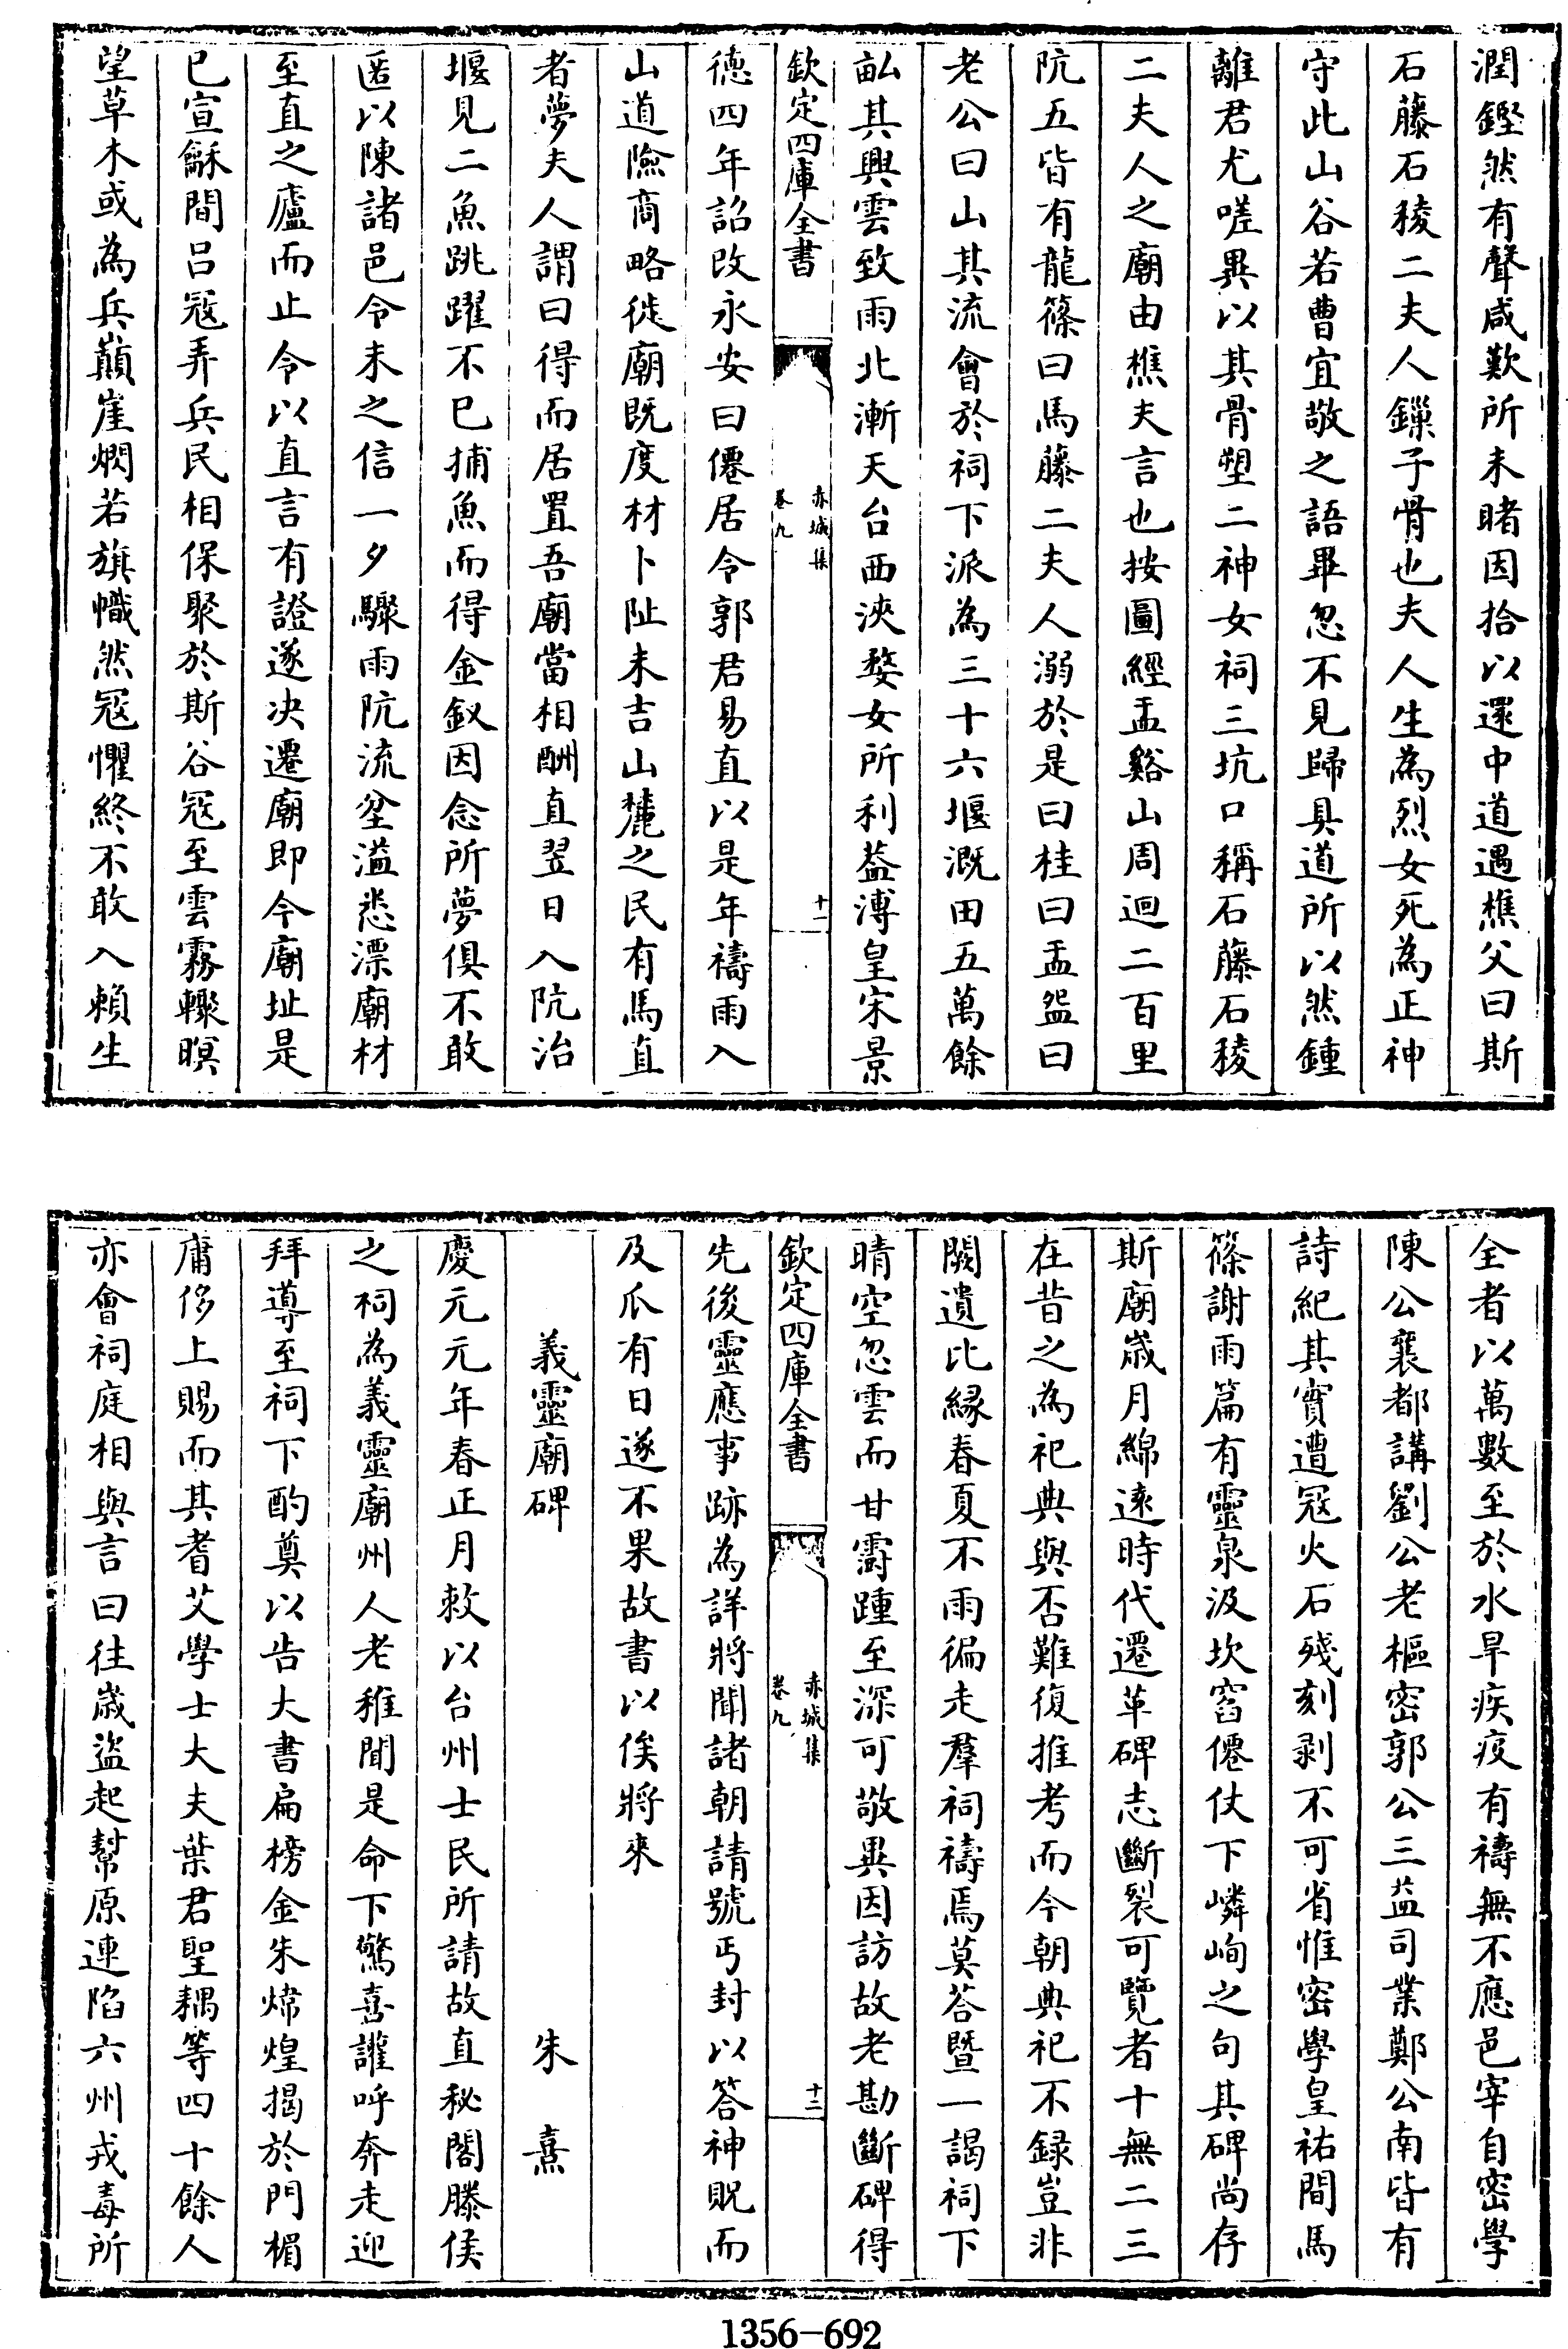 潤鏗然有聲咸歎所未睹因拾以還中道遇樵父曰斯
石藤石稜二夫人鏁子骨也夫人生為烈女死為正神
守此山谷若曹宜敬之語畢忽不見歸具道所以然鍾
離君尤嗟異以其骨塑二神女祠三坑口稱石藤石稜
二夫人之廟由樵夫言也按圖經盂谿山周迴二百里
阬五皆有龍篠曰馬藤二夫人溺於是曰桂曰盂盌曰
老公曰山其流會於祠下派為三十六堰溉田五萬餘
畝其興雲致雨北漸天台西浹婺女所利葢溥皇宋景
欽定四庫全書
赤城集
卷九
十一
徳四年詔改永安曰僊居令郭君易直以是年禱雨入
山道險商略徙廟既度材卜阯未吉山麓之民有馬直
者夢夫人謂曰得而居置吾廟當相酬直翌日入阬治
堰見二魚跳躍不已捕魚而得金釵因念所夢俱不敢
匿以陳諸邑令未之信一夕驟雨阬流坌溢悉漂廟材
至直之廬而止令以直言有證遂決遷廟即今廟址是
已宣龢間呂冦弄兵民相保聚於斯谷冦至雲霧轇暝
望草木或為兵巔崖燜若旗幟然冦懼終不敢入賴生
全者以萬數至於水旱疾疫有禱無不應邑宰自密學
陳公襄都講劉公老樞密郭公三益司業鄭公南皆有
詩紀其實遭冦火石殘刻剥不可省惟密學皇祐間馬
篠謝雨篇有靈泉汲坎窞僊仗下嶙峋之句其碑尚存
斯廟嵗月綿逺時代遷革碑志斷裂可覽者十無二三
在昔之為祀典與否難復推考而今朝典祀不録豈非
闕遺比縁春夏不雨徧走羣祠禱焉莫荅暨一謁祠下
晴空忽雲而甘霌踵至深可敬異因訪故老勘斷碑得
欽定四庫全書
赤城集
卷九
十二
先後靈應事跡為詳將聞諸朝請號丐封以答神貺而
及瓜有日遂不果故書以俟將來
義靈廟碑
朱熹
慶元元年春正月敕以台州士民所請故直秘閣滕侯
之祠為義靈廟州人老稚聞是命下驚喜讙呼奔走迎
拜導至祠下酌奠以告大書扁榜金朱煒煌揭於門楣
庸侈上賜而其耆艾學士大夫葉君聖耦等四十餘人
亦會祠庭相與言曰往嵗盜起幫原連陷六州戎毒所
1356-692